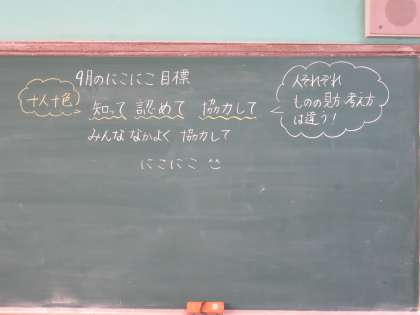 9月のにこにこ目標
十人十色
知って 認めて 協力して
みんな なかよく 協力して
にこにこ
人それぞれ
ものの見方 考え方
は違う!